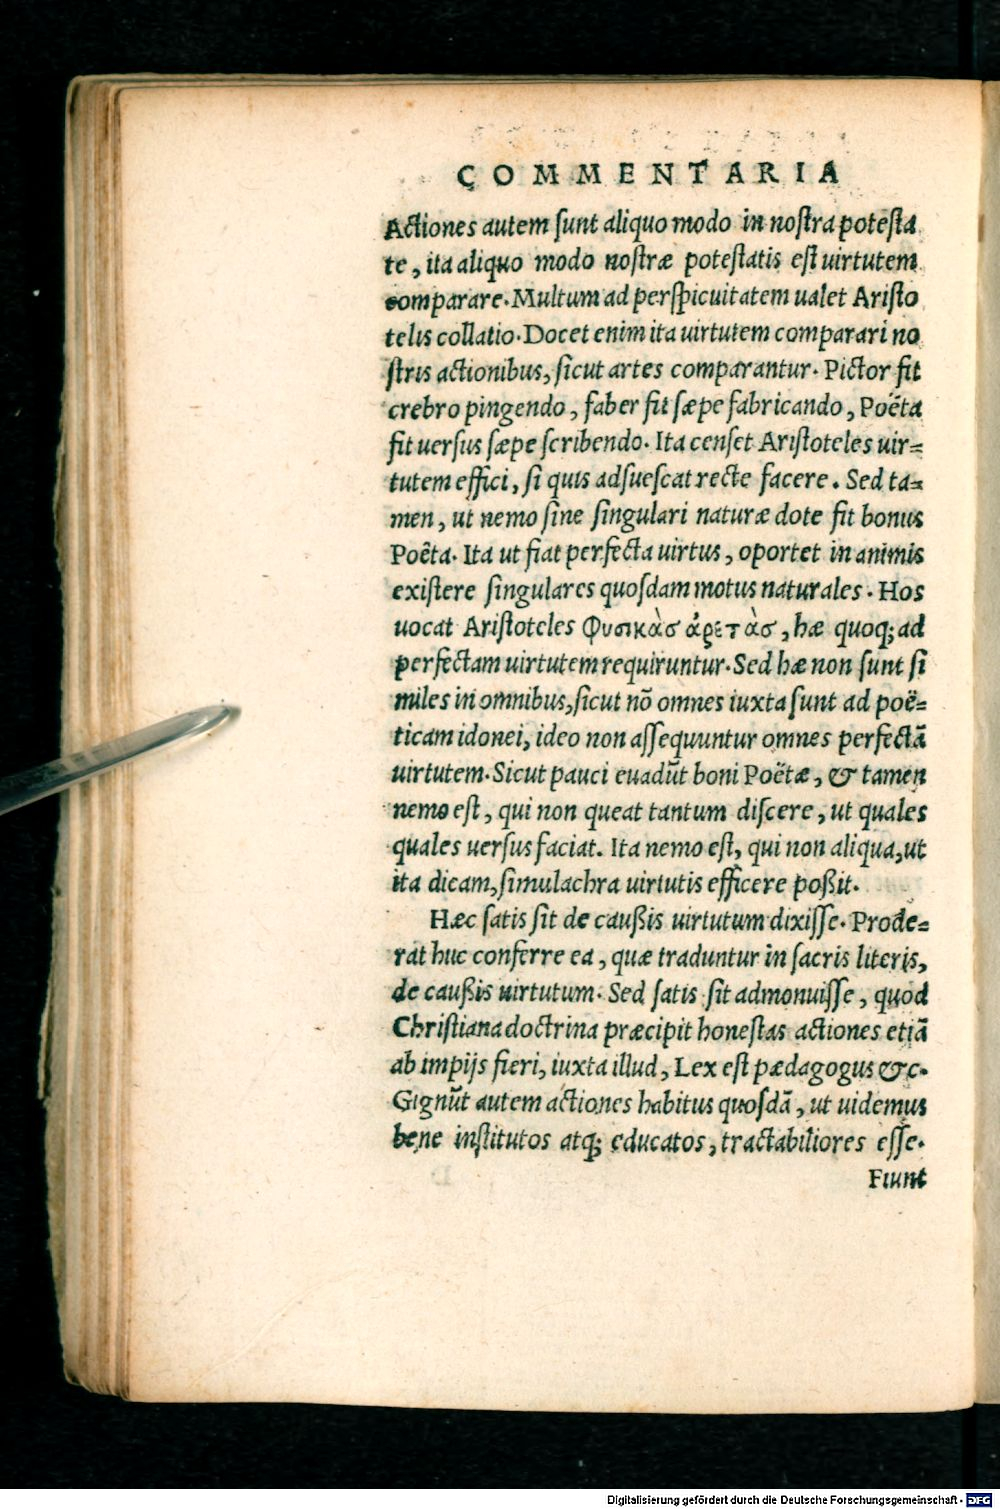 COMMENTARIA
Actiones autem sunt aliquo modo in nostra potesta
te, ita aliquo modo nostræ potestatis est uirtutem
comparare. Multum ad perspicuitatem ualet Aristo
telis collatio. Docet enim ita uirtutem comparari no
stris actionibus, sicut artes comparantur. Pictor fit
crebro pingendo, faber fit sæpe fabricando, Poëta
fit uersus sæpe scribendo. Ita censet Aristoteles uir=
tutem effici, si quis adsuescat recte facere. Sed ta=
men, ut nemo sine singulari naturæ dote fit bonus
Poëta. Ita ut fiat perfecta uirtus, oportet in animis
existere singulares quosdam motus naturales. Hos
uocat Aristoteles Φυσικὰσ ἀρετὰσ, hæ quoq; ad
perfectam uirtutem requiruntur. Sed hæ non sunt si
miles in omnibus, sicut nõ omnes iuxta sunt ad poë=
ticam idonei, ideo non assequuntur omnes perfectã
uirtutem. Sicut pauci euadũt boni Poëtæ, & tamen
nemo est, qui non queat tantum discere, ut quales
quales uersus faciat. Ita nemo est, qui non aliqua, ut
ita dicam, simulachra uirtutis efficere poßit.
Hæc satis sit de caußis uirtutum dixisse. Prode=
rat huc conferre ea, quæ traduntur in sacris literis,
de caußis uirtutum. Sed satis sit admonuisse, quod
Christiana doctrina præcipit honestas actiones etiã
ab impijs fieri, iuxta illud, Lex est pædagogus &c.
Gignũt autem actiones habitus quosdã, ut uidemus
bene institutos atq; educatos, tractabiliores esse.
Fiunt
Digitalisierung gefördert durch die Deutsche Forschungsgemeinschaft - DFG